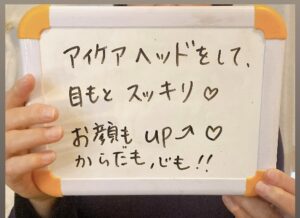 アイケアヘッドをして、
目もと スッキリ♡
お顔も up↗♡
からだも,心も!!